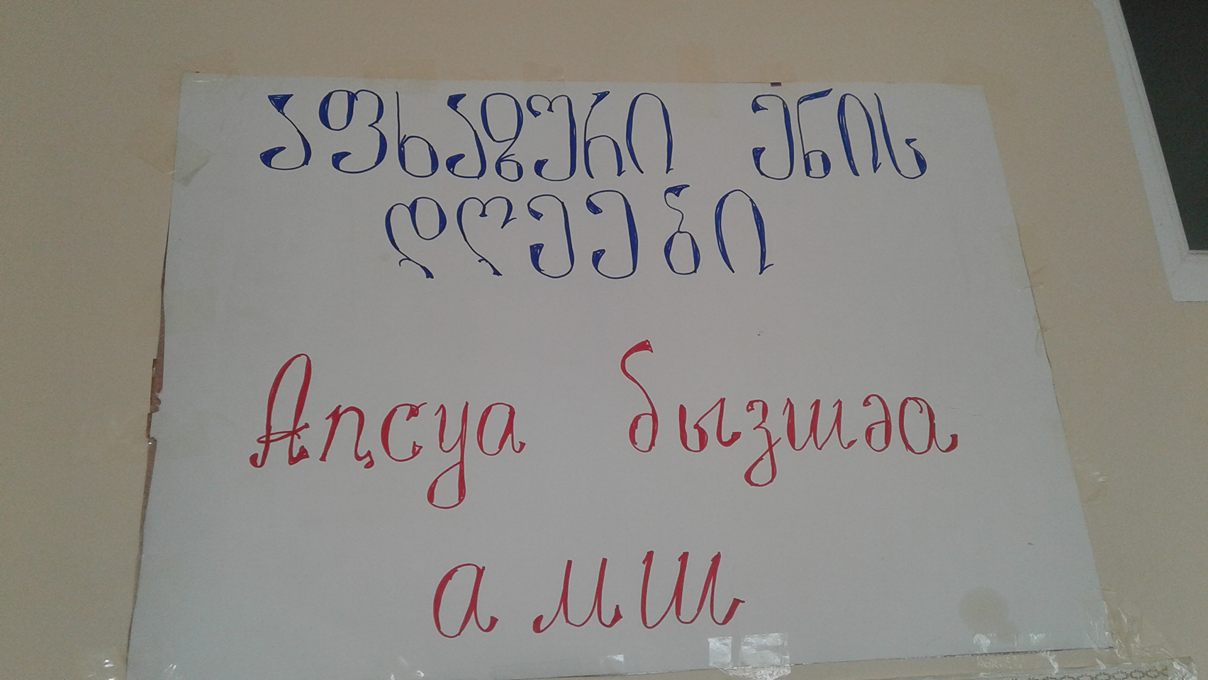 აფხაზური ენის
დღეები
Аԥсуа бызшәа
амш